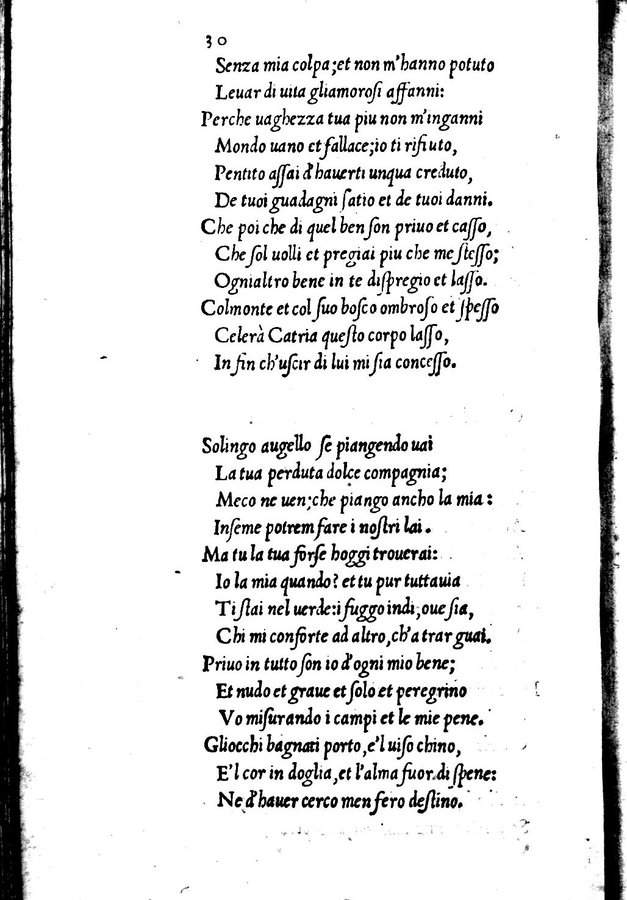 30
Senza mia colpa;et non m'hanno potuto
Leuar di uita gliamorosi affanni:
Perche uaghezza tua piu non m'inganni
Mondo uano et fallace;io ti rifiuto,
Pentito assai d'hauerti unqua creduto,
De tuoi guadagni satio et de tuoi danni.
Che poi che di quel ben son priuo et casso,
Che sol uolli et pregiai piu che me stesso;
Ognialtro bene in te dispregio et lasso.
Colmonte et col suo bosco ombroso et spesso
Celerà Catria questo corpo lasso,
In fin ch'uscir di lui mi sia concesso.
Solingo augello se piangendo uai
La tua perduta dolce compagnia;
Meco ne uen;che piango ancho la mia:
Inseme potrem fare i nostri lai.
Ma tu la tua forse hoggi trouerai:
Io la mia quando? et tu pur tuttauia
Ti stai nel uerde:i fuggo indi,oue sia,
Chi mi conforte ad altro,ch'a trar guai.
Priuo in tutto son io d'ogni mio bene;
Et nudo et graue et solo et peregrino
Vo misurando i campi et le mie pene.
Gliocchi bagnati porto,e'l uiso chino,
E'l cor in doglia,et l'alma fuor di spene:
Ne d'hauer cerco men fero destino.